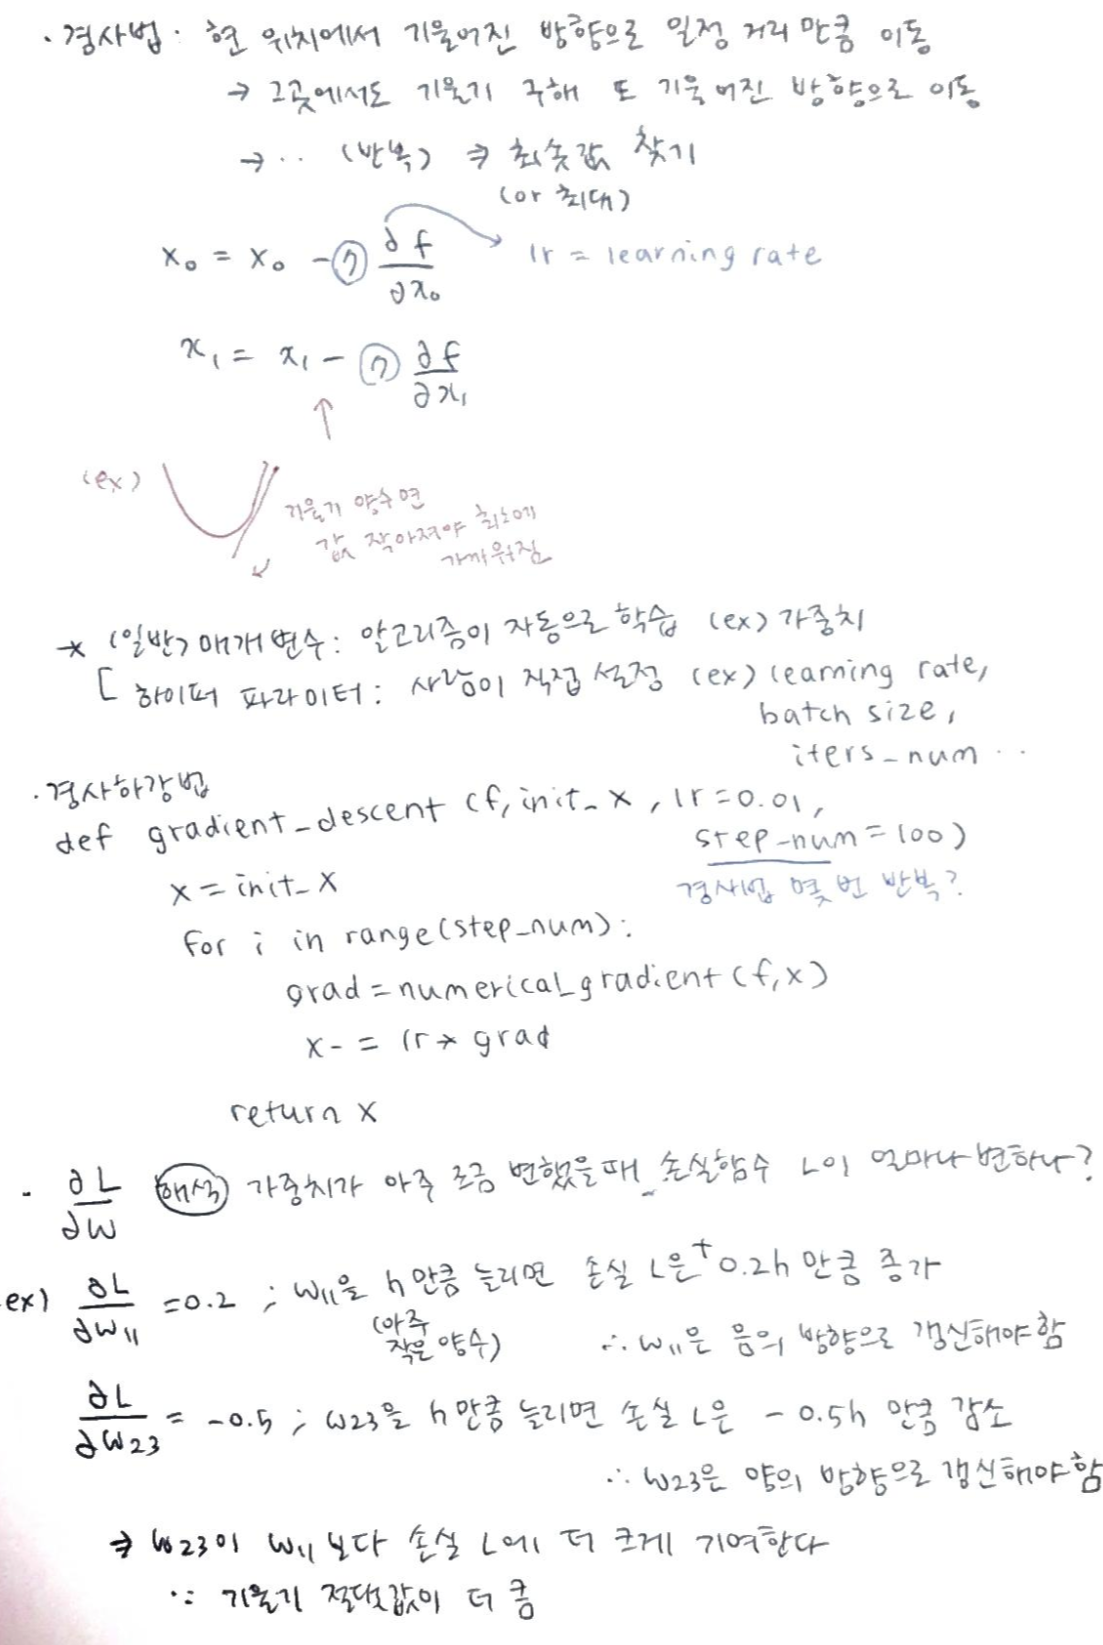 · 경사법 : 현 위치에서 기울어진 방향으로 일정 거리 만큼 이동
→ 그곳에서도 기울기 구해 또 기울어진 방향으로 이동
→ ·· (반복) ⇒ 최솟값 찾기
(or 최대)
x₀ = x₀ - η ∂f/∂x₀ lr = learning rate
x₁ = x₁ - η ∂f/∂x₁
(ex)
기울기 양수면
값 작아져야 최소에
가까워짐
* (일반) 매개변수 : 알고리즘이 자동으로 학습 (ex) 가중치
[ 하이퍼 파라미터 : 사람이 직접 설정 (ex) learning rate,
batch size,
iters_num ··
· 경사하강법
def gradient_descent (f, init_x, lr=0.01,
step_num=100)
경사법 몇 번 반복?
x = init_x
for i in range(step_num):
grad = numerical_gradient (f,x)
x -= lr * grad
return x
· ∂L/∂W 해석 가중치가 아주 조금 변했을때 손실함수 L이 얼마나 변하나?
ex) ∂L/∂w₁₁ = 0.2 ; w₁₁을 h만큼 늘리면 손실 L은 +0.2h 만큼 증가
(아주
작은 양수)
∴ w₁₁은 음의 방향으로 갱신해야함
∂L/∂w23 = -0.5 ; w23을 h만큼 늘리면 손실 L은 -0.5h 만큼 감소
∴ w23은 양의 방향으로 갱신해야함
⇒ w23이 w₁₁보다 손실 L에 더 크게 기여한다
∵ 기울기 절댓값이 더 큼